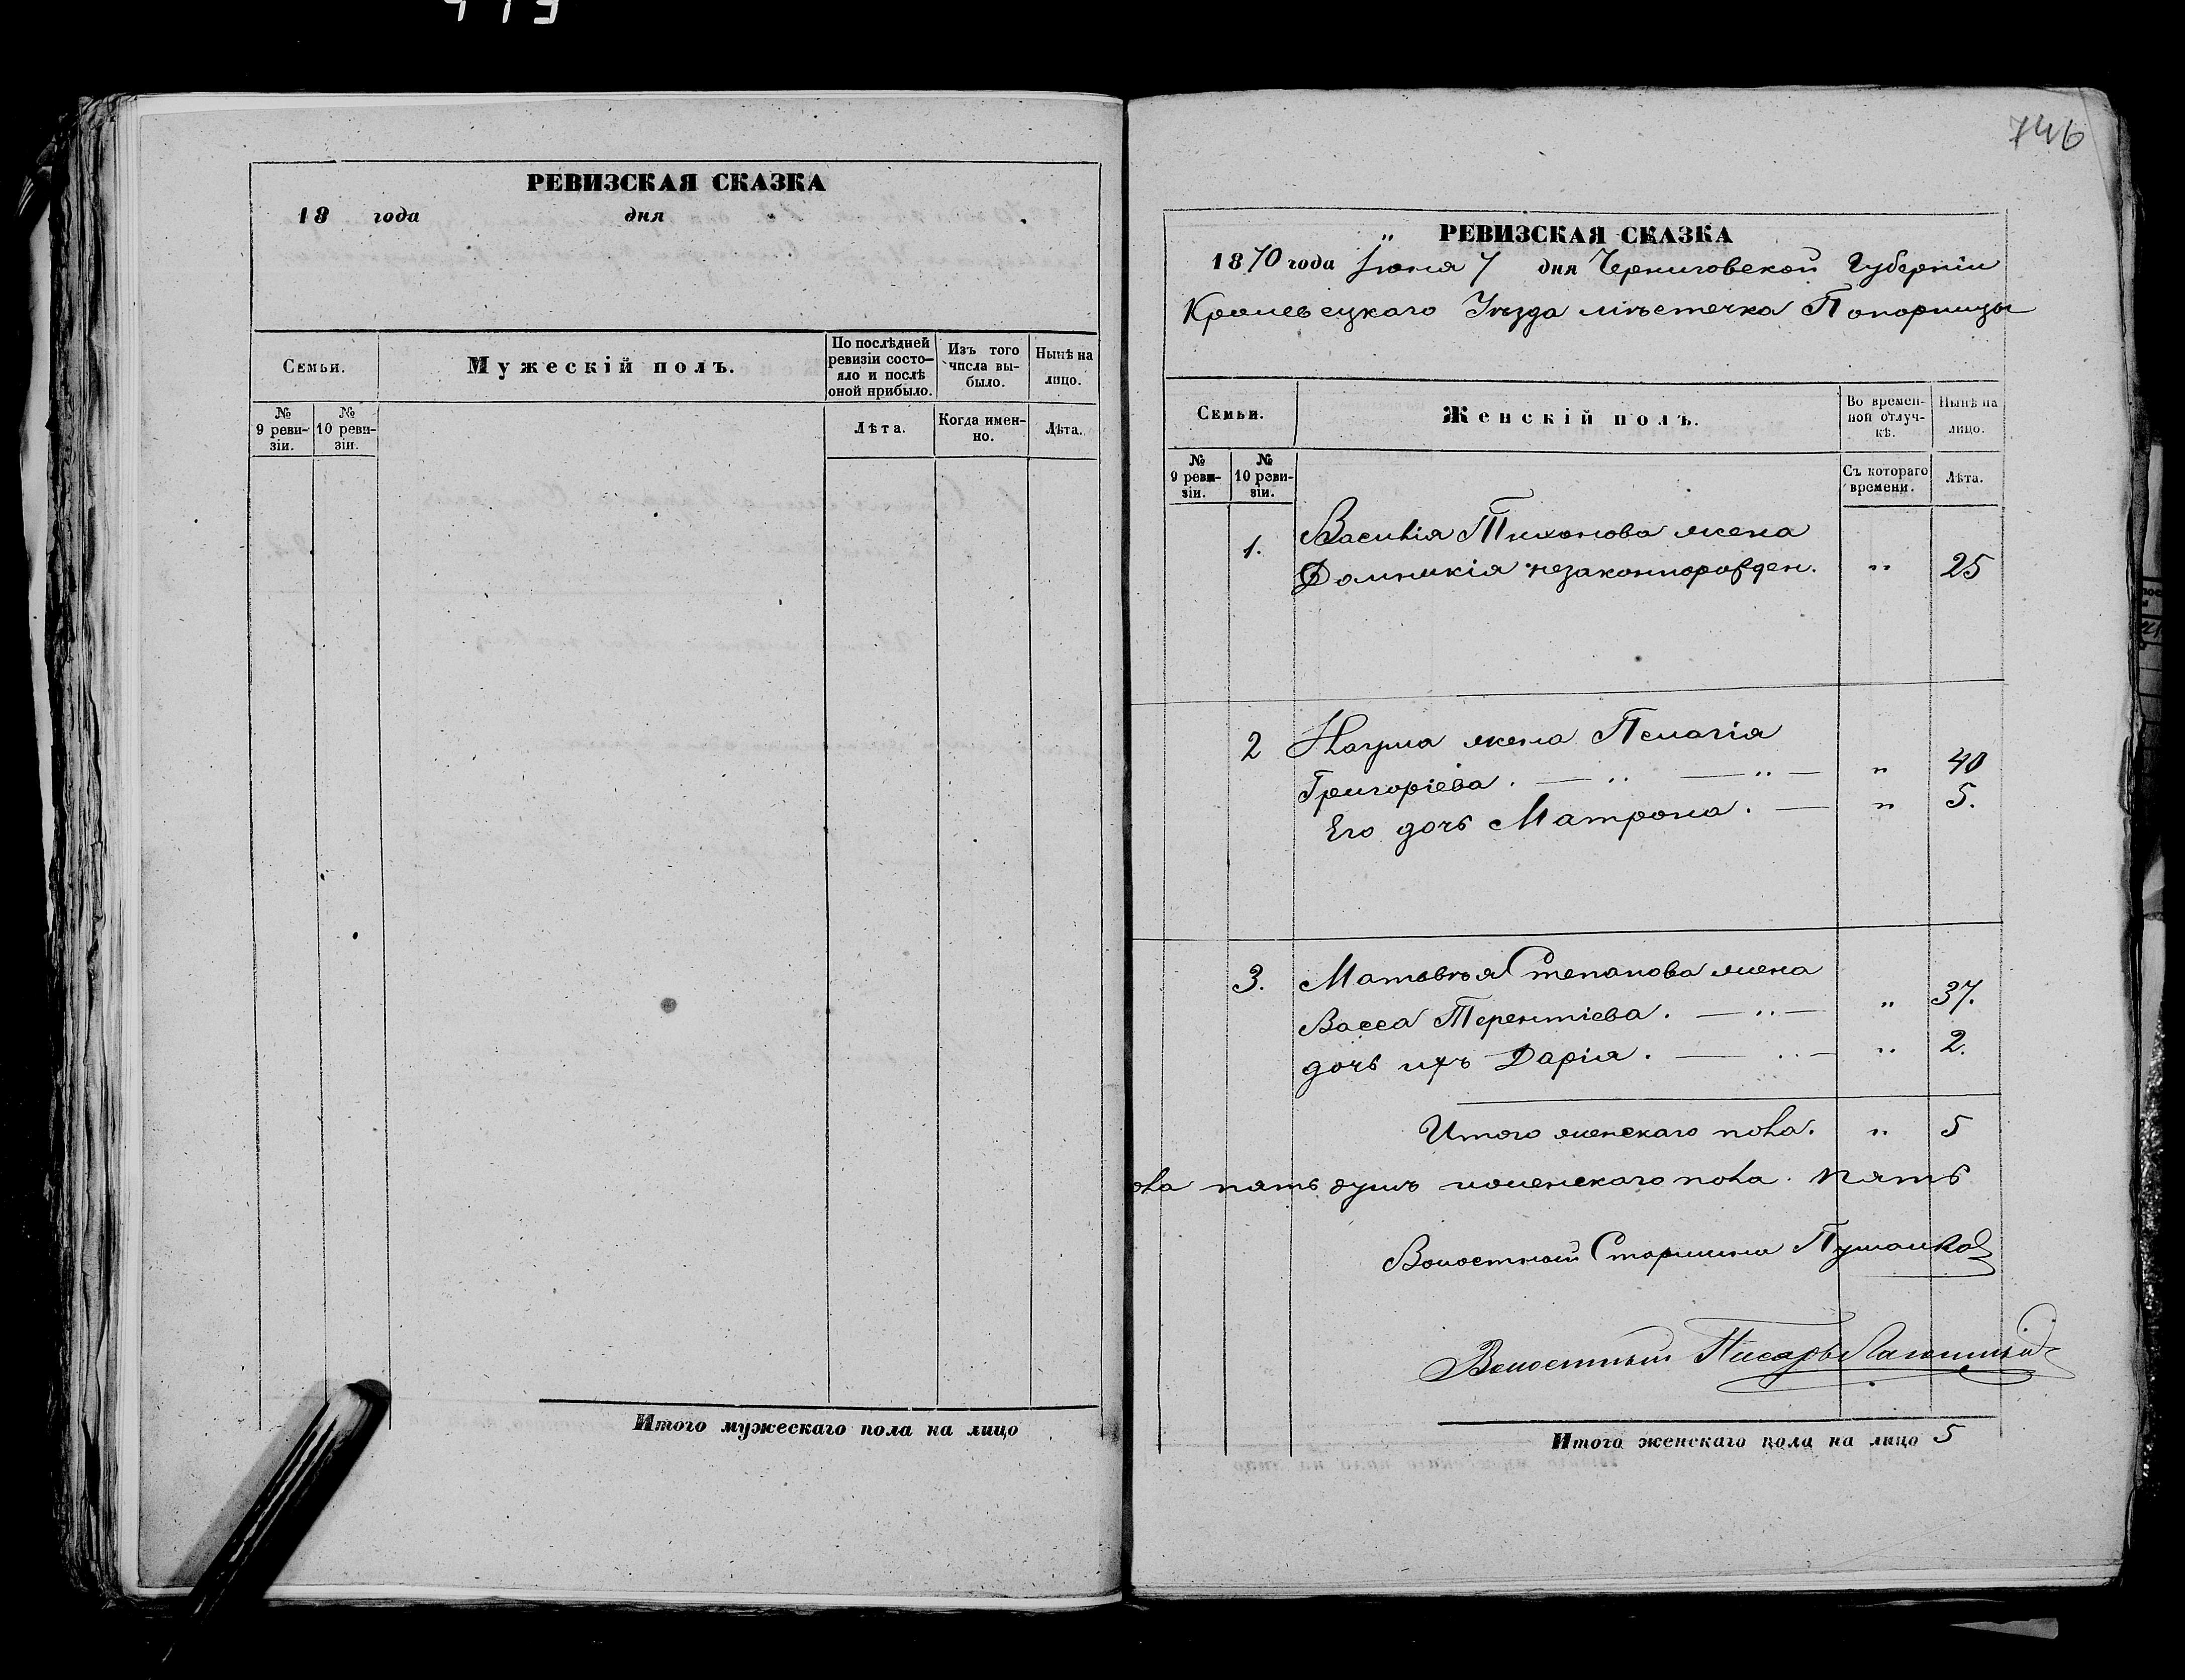 РЕВИЗСКАЯ СКАЗКА
18 года дня
Семьи.
Мужескій полъ.
По послѣдней ревизіи состо-
яло и послѣ
оной прибыло.
Изъ того
числа вы-
было.
Нынѣ на
лицо.
№
9 реви-
зіи.
№
10 реви-
зіи.
Лѣта.
Когда имен-
но.
Лѣта.
Итого мужескаго пола на лицо
746
РЕВИЗСКАЯ СКАЗКА
1870 года Іюня 7 дня Черниговской Губерніи
Кролевецкаго Уѣзда мѣстечка Понорницы
Семьи.
Женскій полъ.
Во времен-
ной отлуч-
кѣ.
Нынѣ на
лицо.
№
9 реви-
зіи.
№
10 реви-
зіи.
Съ котораго
времени.
Лѣта.
1. Василія Тихонова жена
Домникія незаконнорожден. " 25
2 Наума жена Пелагія
Григоріева. — " — " — " 40
Его дочь Матрона. — " 5.
3. Матвѣя Степанова жена
Васса Терентіева. — " — " 37.
дочь ихъ Дарія. — " — " 2.
Итого женскаго пола. " 5
ола пять душъ и женскаго пола. пять
Волостный Старшина
Волостный Писарь
Итого женскаго пола на лицо 5